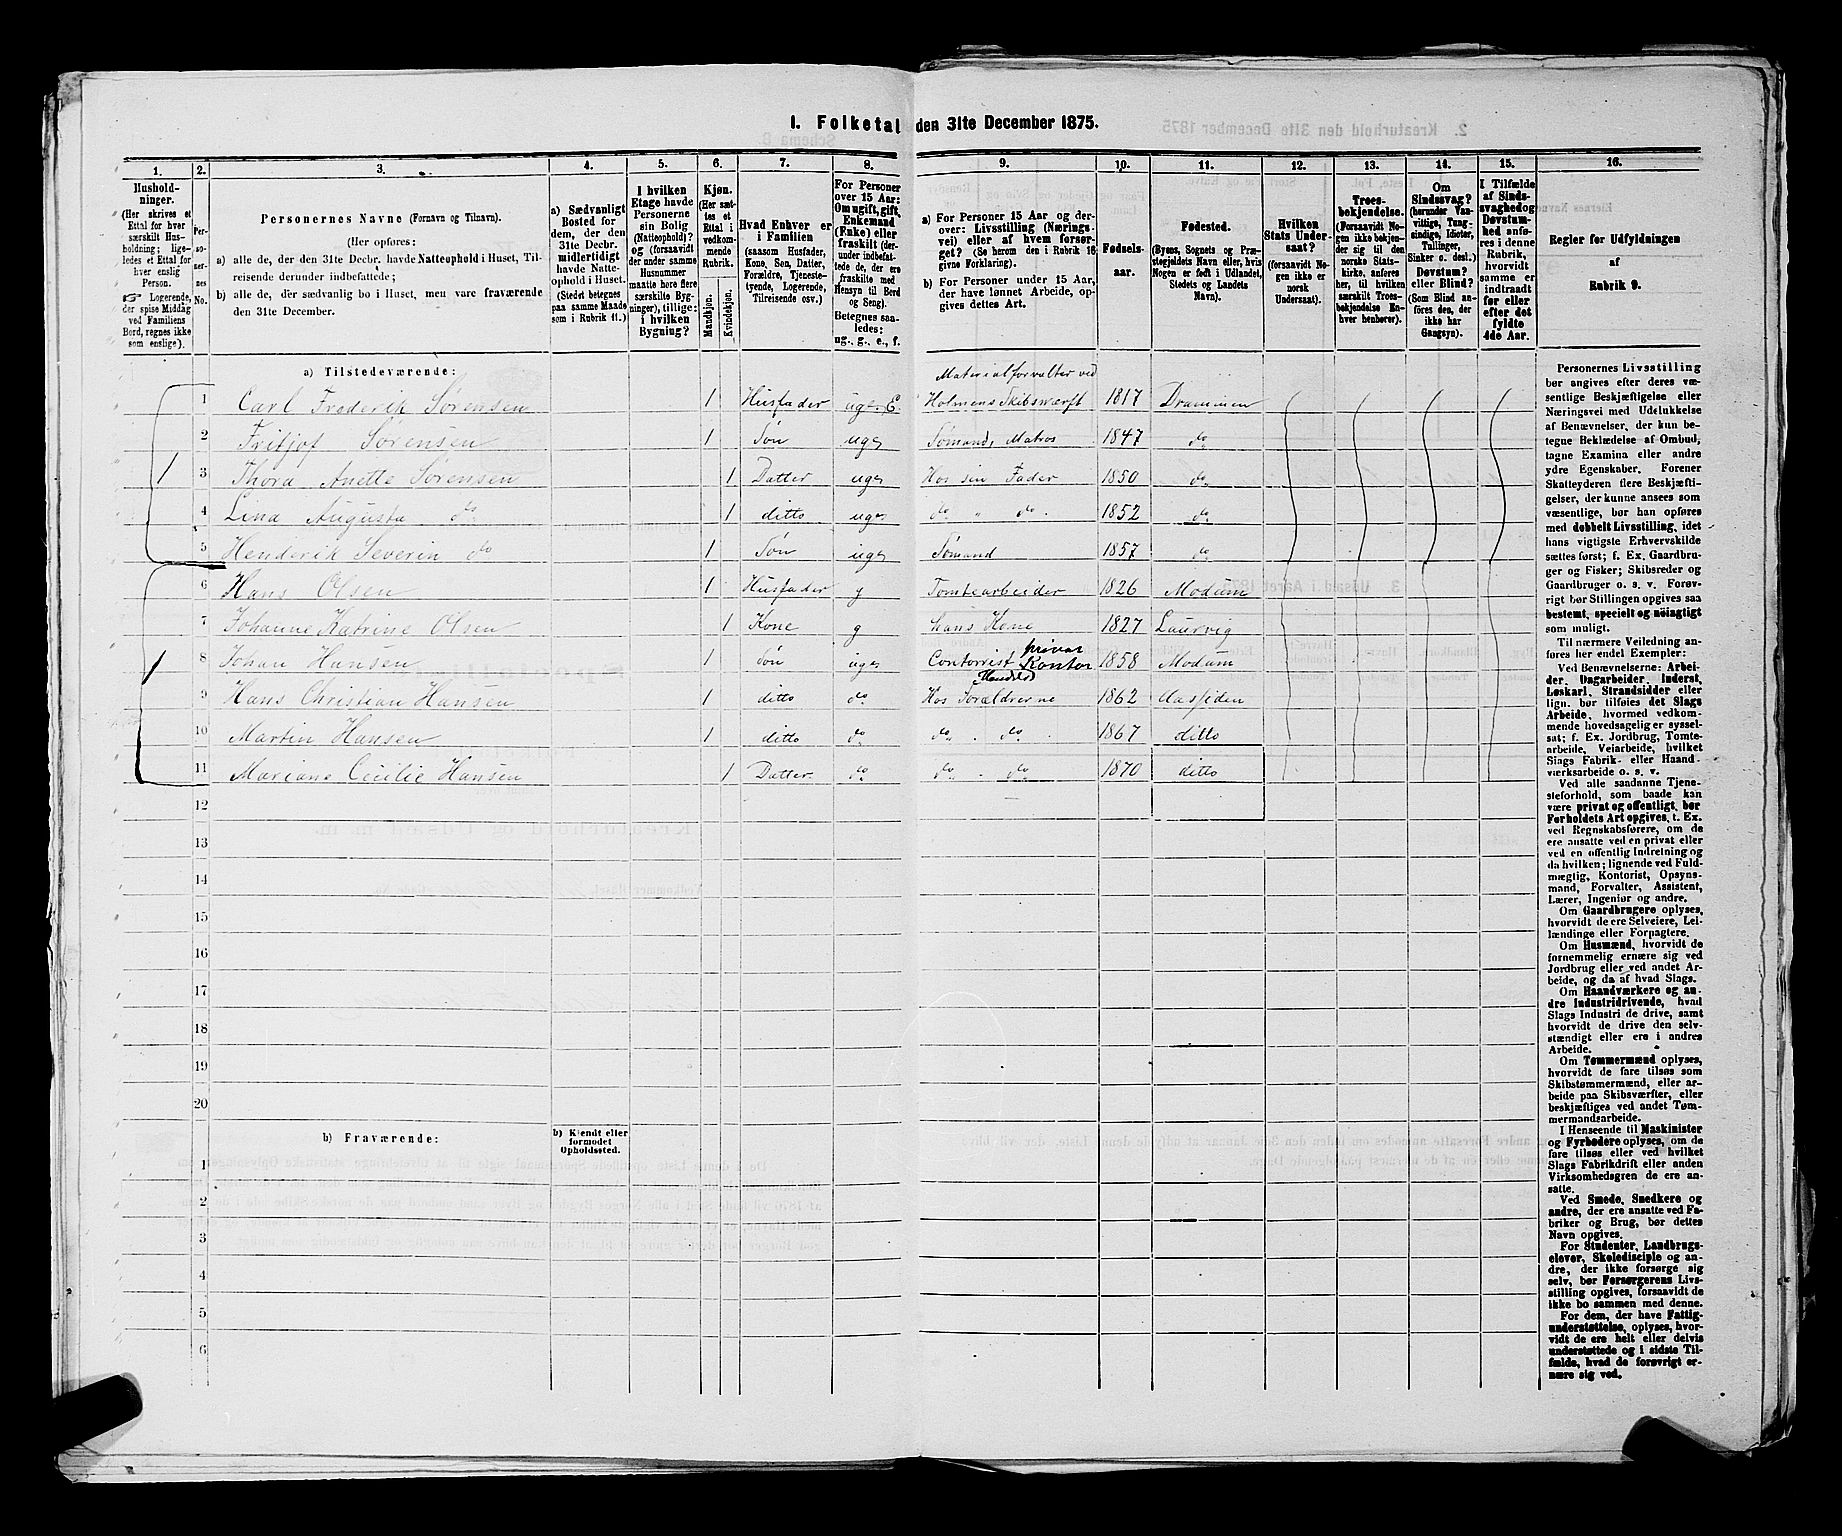 1. Folketal den 31te December 1875.
1. 2. 3. 4. 5. 6. 7. 8. 9. 10. 11. 12. 13. 14. 15. 16.
Hushold-
ninger.
(Her skrives et
Ettal for hver
særskilt Hus-
holdning; lige-
ledes et Ettal for
hver enslig
Person.
☞ Logerende,
der spise Middag
ved Familiens
Bord, regnes ikke
som enslige).
Per-
so-
ner-
nes
No.
Personernes Navne (Fornavn og Tilnavn).
(Her opføres:
a) alle de, der den 31te Decbr. havde Natteophold i Huset, Til-
reisende derunder indbefattede;
b) alle de, der sædvanlig bo i Huset, men vare fraværende
den 31te December.
a) Sædvanligt
Bosted for
dem, der den
31te Decbr.
midlertidigt
havde Natte-
ophold i Huset.
(Stedet betegnes
paa samme Maade
som i Rubrik 11.)
I hvilken
Etage havde
Personerne
sin Bolig
(Natteophold)?
og (forsaavidt
der under samme
Husnummer
maatte høre flere
særskilte Byg-
ninger), tillige:
i hvilken
Bygning?
Kjøn.
(Her sæt-
tes et
Ettal i
vedkom-
mende
Rubrik.
Mandkjøn.
Kvindekjøn.
Hvad Enhver er
i Familien
(saasom Husfader,
Kone, Søn, Datter,
Forældre, Tjeneste-
tyende, Logerende,
Tilreisende osv.)
For Personer
over 15 Aar:
Om ugift, gift,
Enkemand
(Enke) eller
fraskilt (der-
under indbefat-
tede de, der ere
fraskilte med
Hensyn til Bord
og Seng).
Betegnes saa-
ledes:
ug., g., e., f.
a) For Personer 15 Aar og der-
over: Livsstilling (Nærings-
vei) eller af hvem forsør-
get? (Se herom den i Rubrik 16
givne Forklaring).
b) For Personer under 15 Aar,
der have lønnet Arbeide, op-
gives dettes Art.
Fødsels-
aar.
Fødested.
(Byens, Sognets og Præ-
stegjeldets Navn eller, hvis
Nogen er født i Udlandet,
Stedets og Landets
Navn).
Hvilken
Stats Under-
saat?
(forsaavidt No-
gen ikke er
norsk
Undersaat).
Troes-
bekjendelse.
(Forsaavidt No-
gen ikke bekjen-
der sig til den
norske Stats-
kirke, anføres
her, til hvilken
særskilt Troes-
bekjendelse En-
hver henhører).
Om
Sindssvag?
(herunder Van-
vittige, Tung-
sindige, Idioter,
Tullinger,
Sinker o. desl.)
Døvstum?
eller Blind?
(Som Blind an-
føres den, der
ikke har
Gangsyn).
I Tilfælde
af Sinds-
svaghed og
Døvstum-
hed anfø-
res i denne
Rubrik,
hvorvidt
samme er
indtraadt
før eller
efter det
fyldte
4de Aar.
Regler for Udfyldningen
af
Rubrik 9.
a) Tilstedeværende:
Materialforvalter ved
1 Carl Frederik Sørensen 1 Husfader ug. E. Holmens Skibsværft 1817 Drammen
2 Fritjof Sørensen 1 Søn ug. Sømand, Matros 1847 do
1 3 Thora Anette Sørensen 1 Datter ug. Hos sin Fader 1850 do
4 Lina Augusta do 1 ditto ug. do " do 1852 do
5 Henderik Severin do 1 Søn ug. Sømand 1857 do
6 Hans Olsen 1 Husfader g Tomtearbeider 1826 Modum
7 Johanne Katrine Olsen 1 Kone g hans Kone 1827 Laurvig
privat
1 8 Johan Hansen 1 Søn ug. Contorrist Kontor 1858 Modum
9 Hans Christian Hansen 1 ditto do Hos Forældrerne 1862 Aassiden
10 Martin Hansen 1 ditto do do " do 1867 ditto
11 Mariane Cecilie Hansen 1 Datter do do " do 1870 ditto
12
13
14
15
16
17
18
19
20
b) Fraværende:
b) Kjendt eller
formodet
Opholdssted.
1
2
3
4
5
6
Personernes Livsstilling
bør angives efter deres væ-
sentlige Beskjæftigelse eller
Næringsvei med Udelukkelse
af Benævnelser, der kun be-
tegne Beklædelse af Ombud,
tagne Examina eller andre
ydre Egenskaber. Forener
Skatteyderen flere Beskjæfti-
gelser, der kunne ansees som
væsentlige, bør han opføres
med dobbelt Livsstilling, idet
hans vigtigste Erhvervskilde
sættes først; f. Ex. Gaardbru-
ger og Fisker; Skibsreder og
Gaardbruger o. s. v. Forøv-
rigt bør Stillingen opgives saa
bestemt, specielt og nöiagtigt
som muligt.
Til nærmere Veiledning an-
føres her endel Exempler:
Ved Benævnelserne: Arbei-
der, Dagarbeider, Inderst,
Løskarl, Strandsidder eller
lign. bør tilføies det Slags
Arbeide, hvormed vedkom-
mende hovedsagelig er syssel-
sat; f. Ex. Jordbrug, Tomte-
arbeide, Veiarbeide, hvilket
Slags Fabrik- eller Haand-
værksarbeide o. s. v.
Ved alle saadanne Tjene-
steforhold, som baade kan
være privat og offentligt, bør
Forholdets Art opgives, t. Ex.
ved Regnskabsførere, om de
ere ansatte ved en privat eller
ved en offentlig Indretning og
da hvilken; lignende ved Fuld-
mægtig, Kontorist, Opsyns-
mand, Forvalter, Assistent,
Lærer, Ingeniør og andre.
Om Gaardbrugere oplyses,
hvorvidt de ere Selveiere, Lei-
lændinge eller Forpagtere.
Om Husmænd, hvorvidt de
fornemmelig ernære sig ved
Jordbrug eller ved andet Ar-
beide, og da af hvad Slags.
Om Haandværkere og an-
dre Industridrivende, hvad
Slags Industri de drive, samt
hvorvidt de drive den selv-
stændigt eller ere i andres
Arbeide.
Om Tømmermænd oplyses,
hvorvidt de fare tilsøs som
Skibstømmermænd, eller ar-
beide paa Skibsværfter, eller
beskjæftiges ved andet Tøm-
mermandsarbeide.
I Henseende til Maskinister
og Fyrbødere oplyses, om de
fare tilsøs eller ved hvilket
Slags Fabrikdrift eller anden
Virksomhedsgren de ere an-
satte.
Ved Smede, Snedkere og
andre, der ere ansatte ved Fa-
briker og Brug, bør dettes
Navn opgives.
For Studenter, Landbrugs-
elever, Skoledisciple og an-
dre, der ikke forsørge sig
selv, bør Forsørgerens Livs-
stilling opgives, forsaavidt de
ikke bo sammen med denne.
For dem, der have Fattig-
understøttelse, oplyses, hvor-
vidt de ere helt eller delvis
understøttede og i sidste Til-
fælde, hvad de forøvrigt er-
nære sig ved.